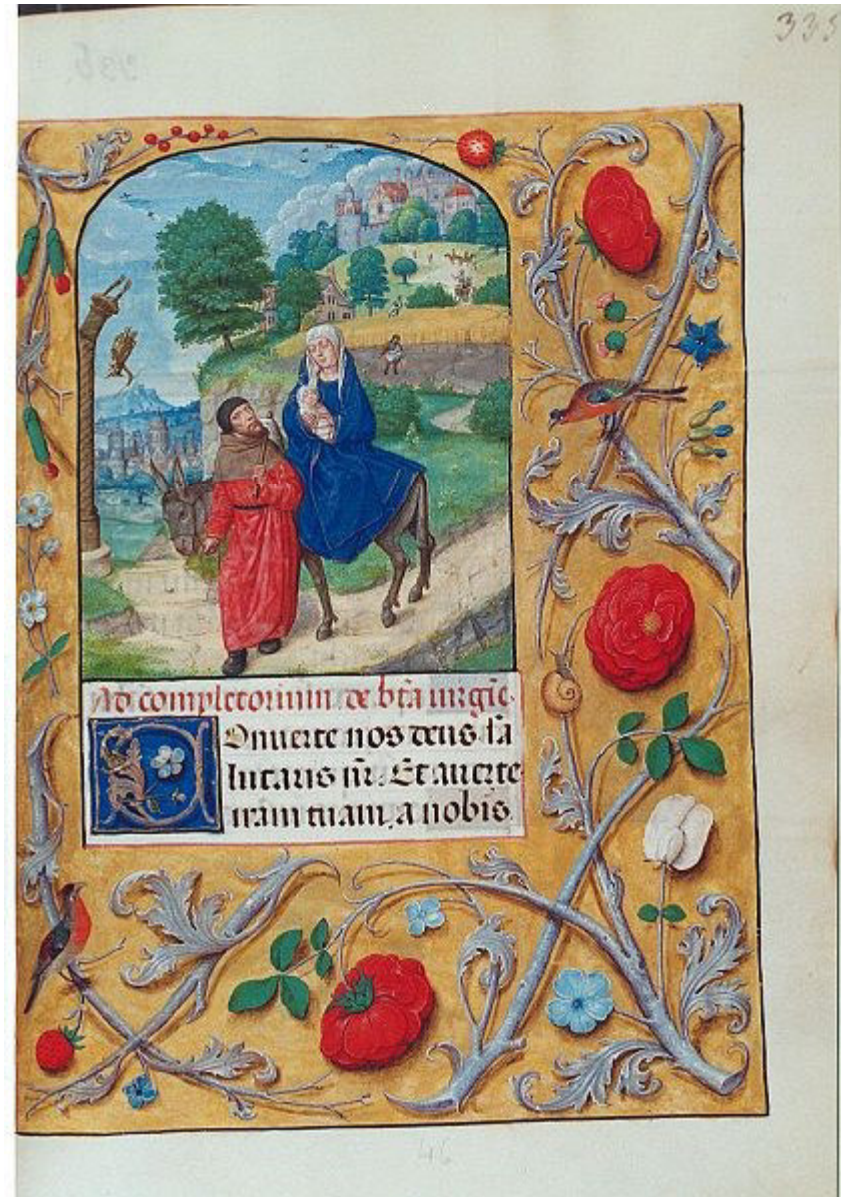 335
Ad completorium de bta uirgie.
Conuerte nos deus sa
lutaris nr. Et auerte
iram tuam a nobis.
46